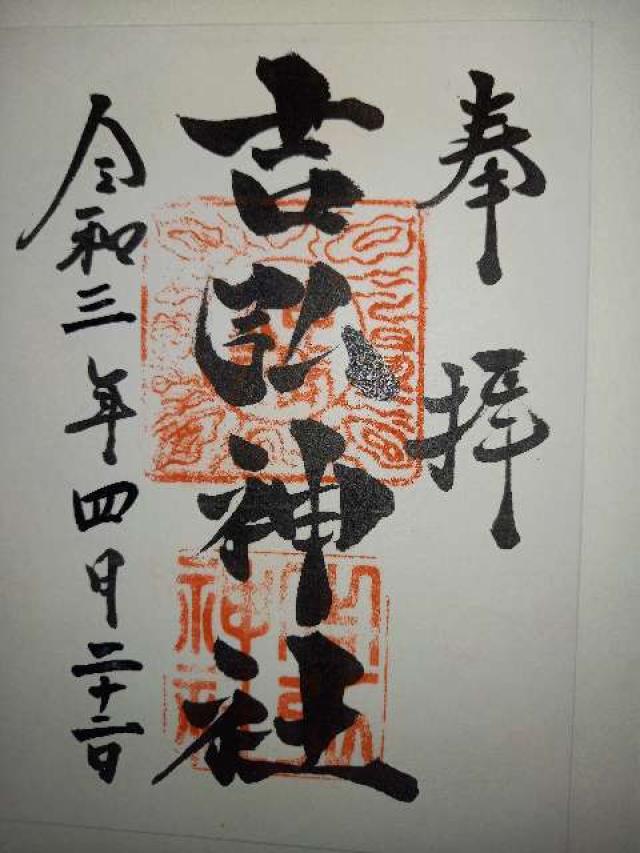 奉拝
吉弘神社
令和三年四月二十二日